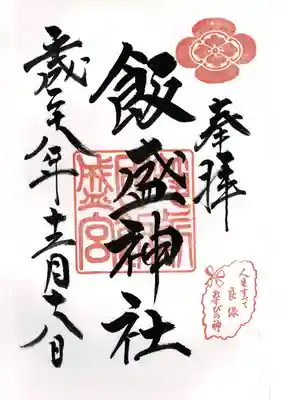 奉拝
飯盛神社
八年十二月十八日
人生すべて
良縁
むすびの神